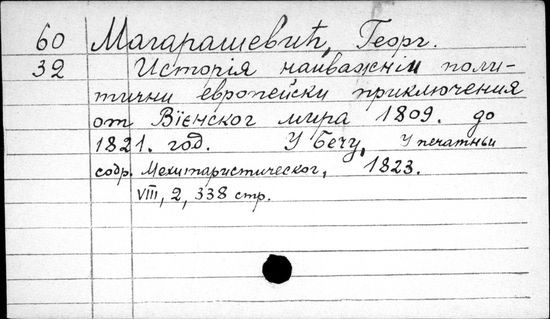 60 Магарашевић, Георг.
32 Исторія наиважніи поли-
тични европейски приключения
от Вїенског мира 1809. до
1821. год. У Бечу, У печатньи
собр. Мехитаристическог, 1823.
VIII, 2, 338 стр.